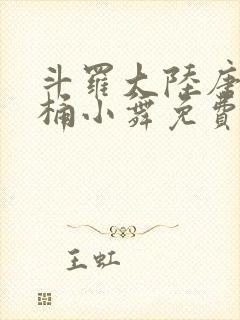 斗羅大陸唐
桶小舞免費
王虹